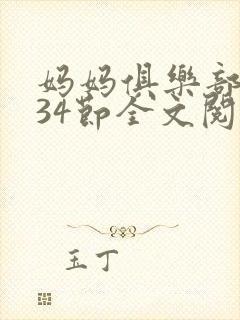 妈妈俱樂部
34節全文閱
玉丁